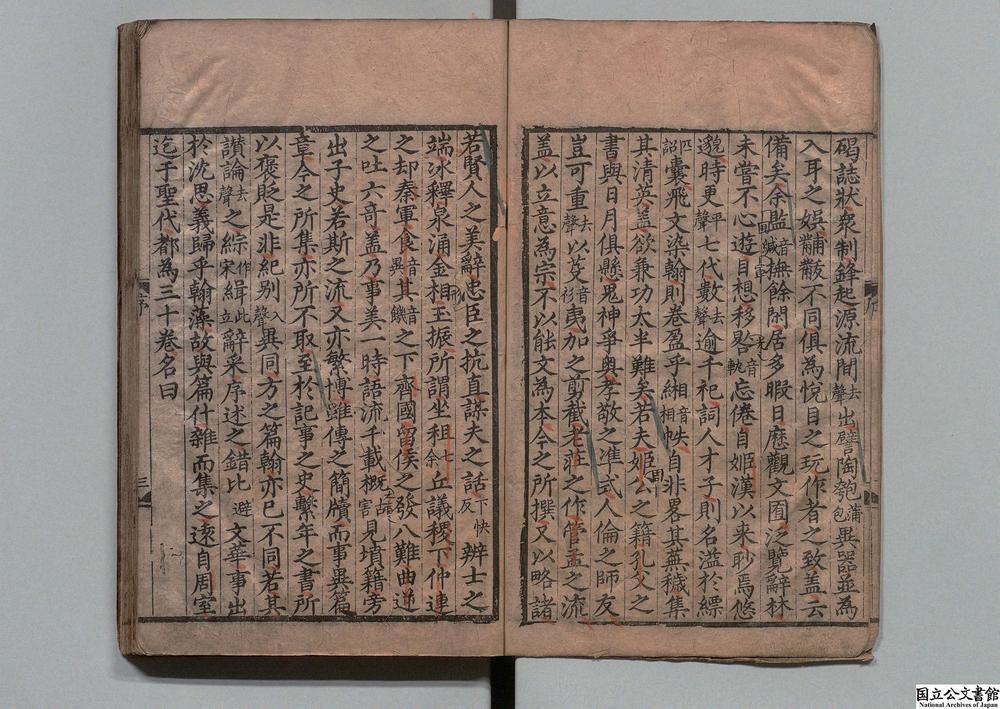 碣誌狀衆制鋒起源流間去聲出譬陶匏蒲包異器並為
入耳之娛黼黻不同俱為悅目之玩作者之致盖云
備矣余監音緘撫餘閑居多暇日歷觀文囿泛覽辭林
未嘗不心遊目想移晷音軌忘倦自姬漢以來眇焉悠
邈時更平聲七代數去逾千祀詞人才子則名溢於縹
匹詔囊飛文染翰則卷盈乎緗音相帙自非畧其蕪穢集
其清英盖欲兼功太半難矣若夫姬公之籍孔父之
書與日月俱懸鬼神爭奧孝敬之准式人倫之師友
豈可重去聲以芟音衫夷加之剪截老莊之作管孟之流
盖以立意為宗不以能文為本今之所撰又以略諸
若賢人之美辭忠臣之抗直謀夫之話下快反辨士之
端冰釋泉涌金相玉振所謂坐狙七余丘議稷下仲連
之却秦軍食音異其音饑之下齊國留侯之發八難曲逆
之吐六奇盖乃事美一時語流千載概古害見墳籍旁
出子史若斯之流又亦繁博雖傳之簡牘而事異篇
章今之所集亦所不取至於記事之史繫年之書所
以褒貶是非紀別入聲異同方之篇翰亦已不同若其
讃論去聲之綜作宋緝此立辭采序述之錯比避文華事出
於沈思義歸乎翰藻故與篇什雜而集之遠自周室
迄于聖代都為三十卷名曰
序
三
国立公文書館
National Archives of Japan